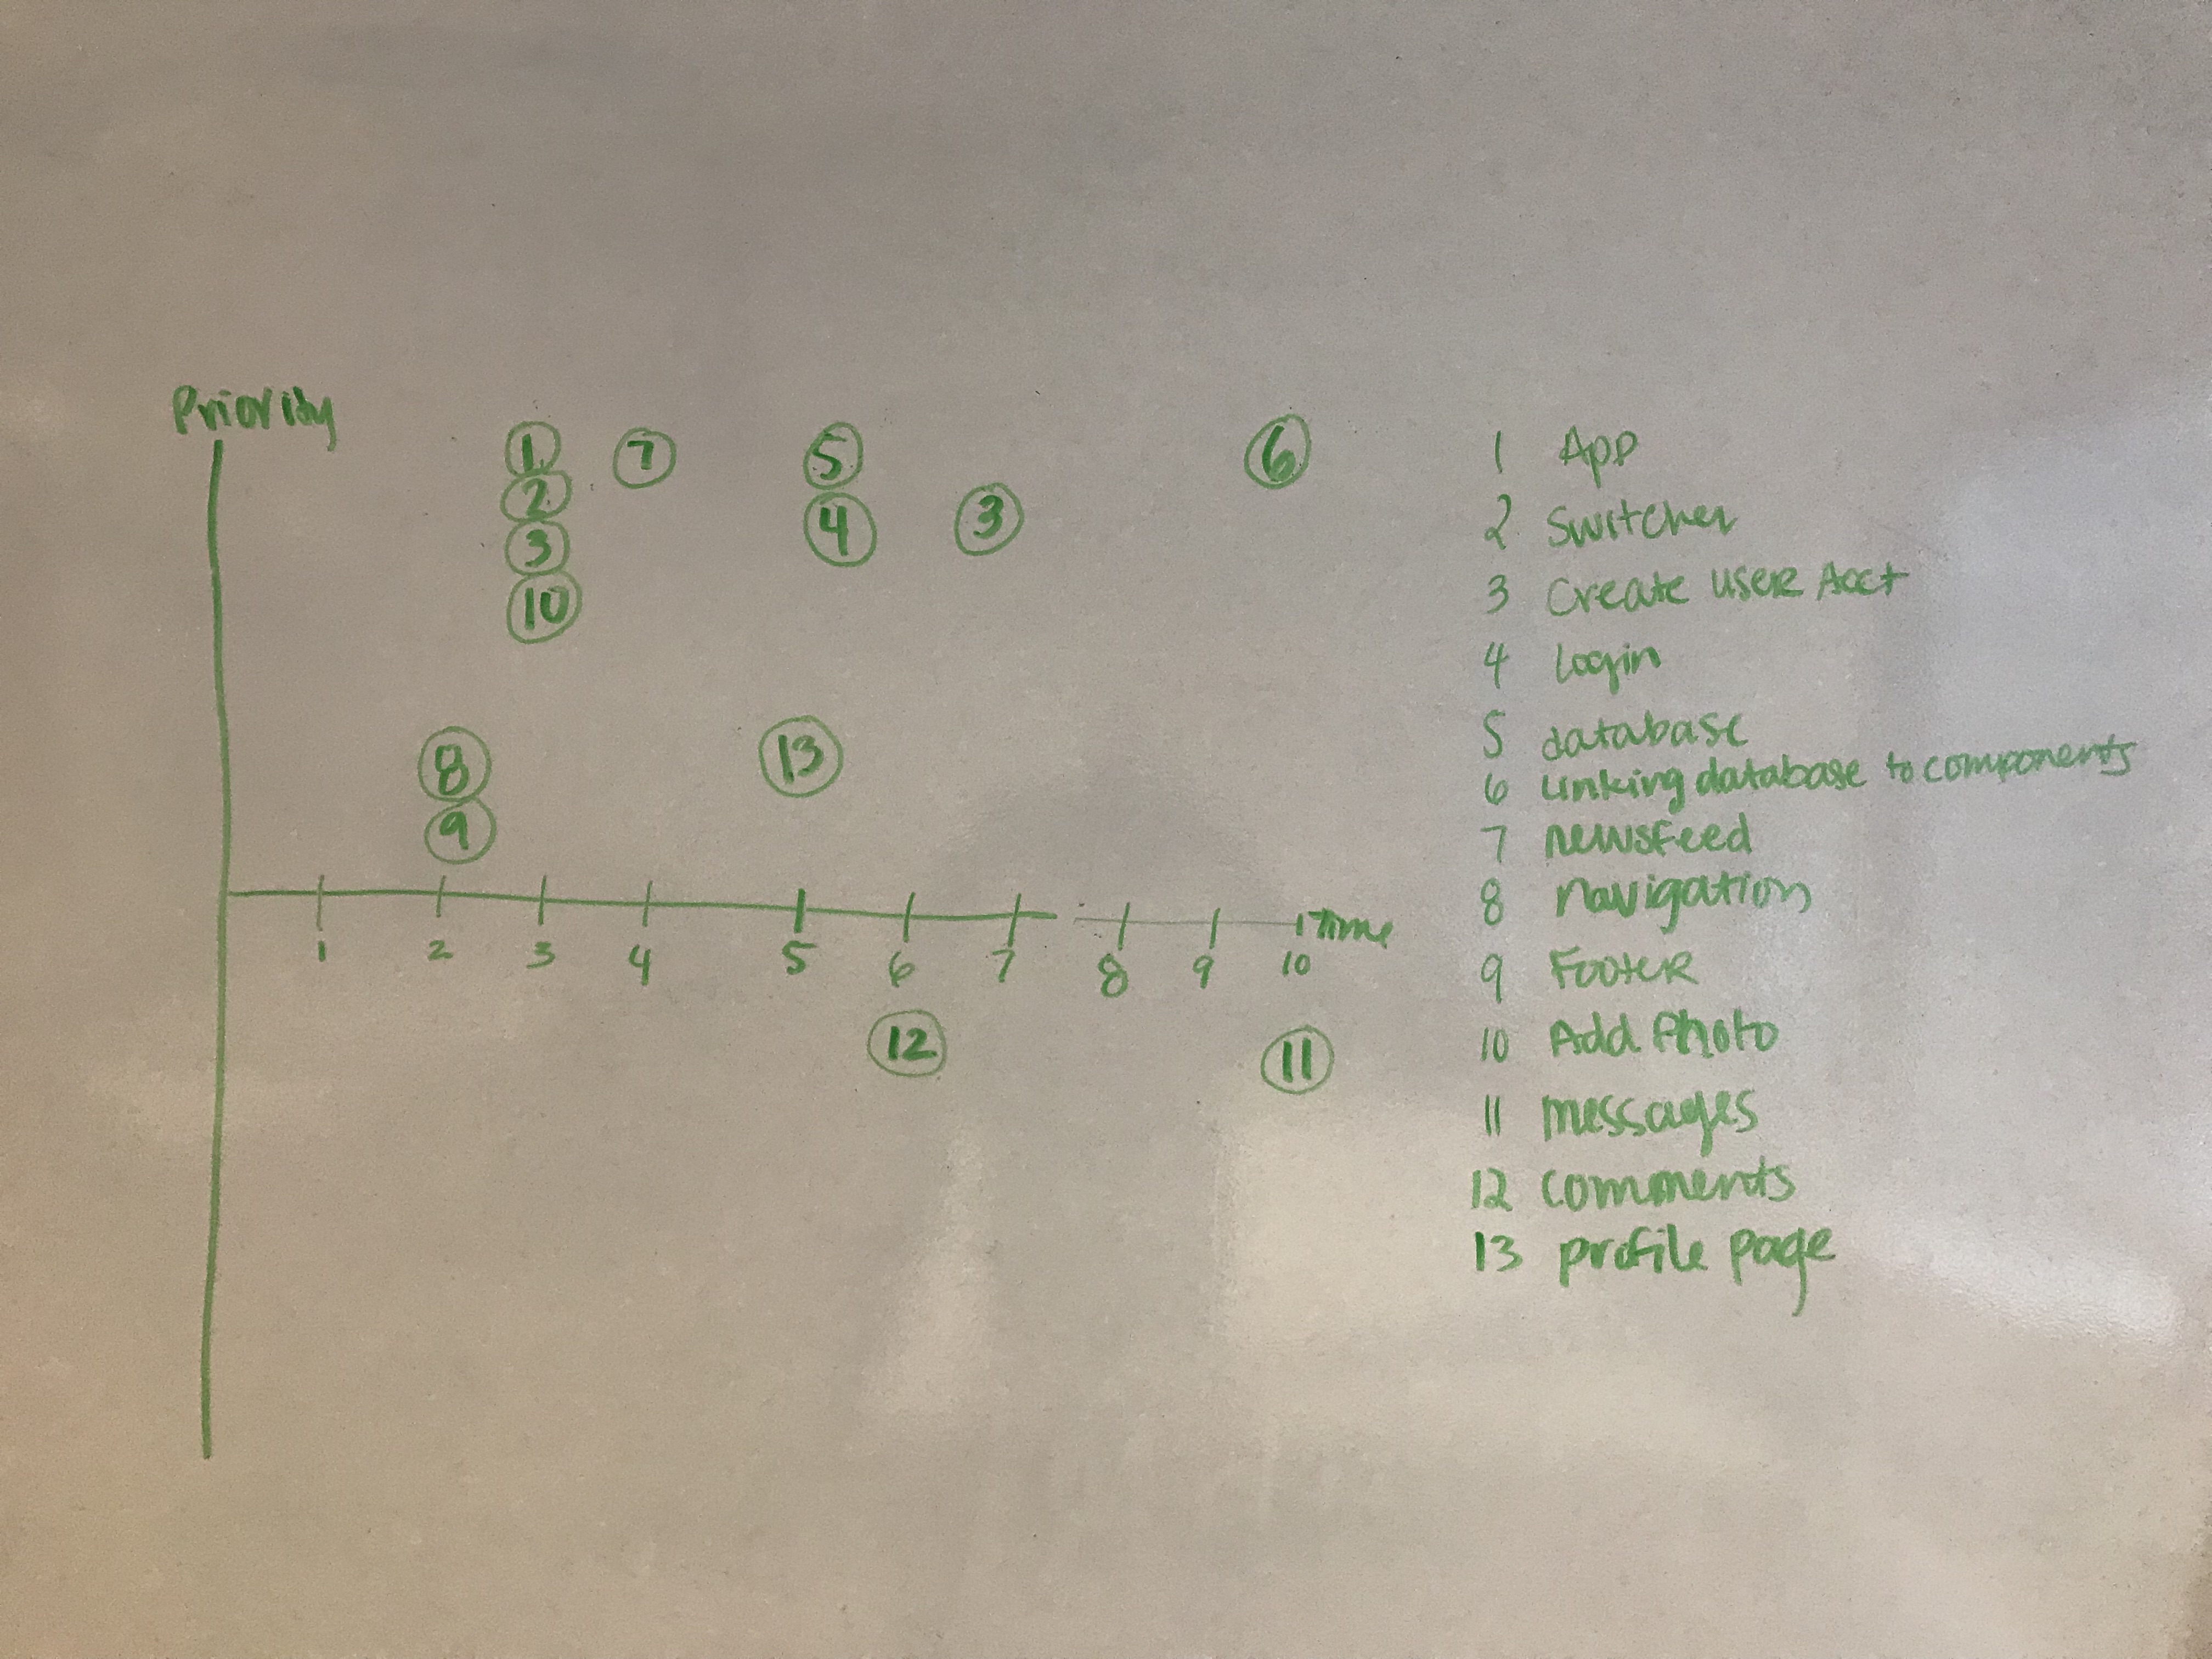 Priority
1 7 5 6
2
3 4 3
10
8 13
9
Time
1 2 3 4 5 6 7 8 9 10
12 11
1 App
2 Switcher
3 Create USER Acct
4 Login
5 database
6 Linking database to components
7 newsfeed
8 navigation
9 FooteR
10 Add Photo
11 messages
12 comments
13 profile page